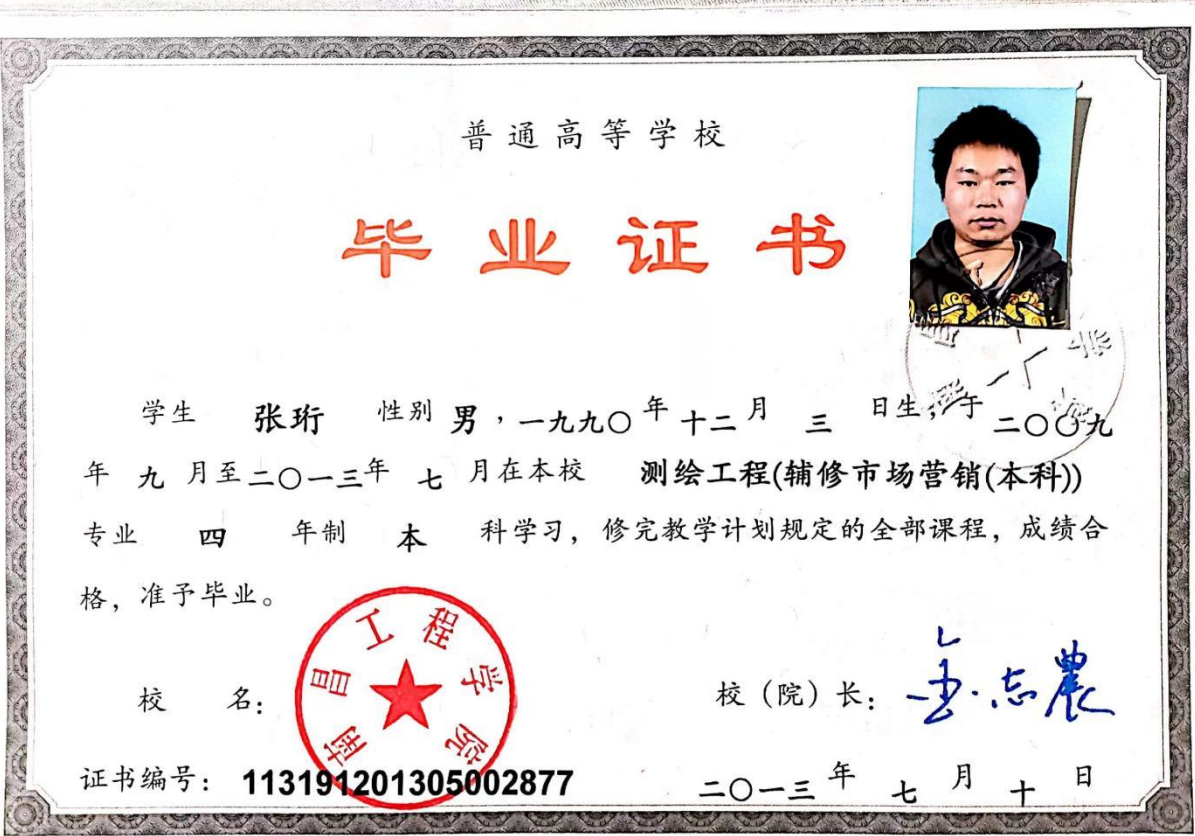 普通高等学校
毕业证书
学生 张珩 性别 男，一九九〇年十二月三日生，于二〇〇九
年九月至二〇一三年七月在本校 测绘工程(辅修市场营销(本科))
专业 四 年制 本 科学习，修完教学计划规定的全部课程，成绩合
格，准予毕业。
南昌工程学院
校 名：
校（院）长：金志農
证书编号：113191201305002877
二〇一三年七月十日